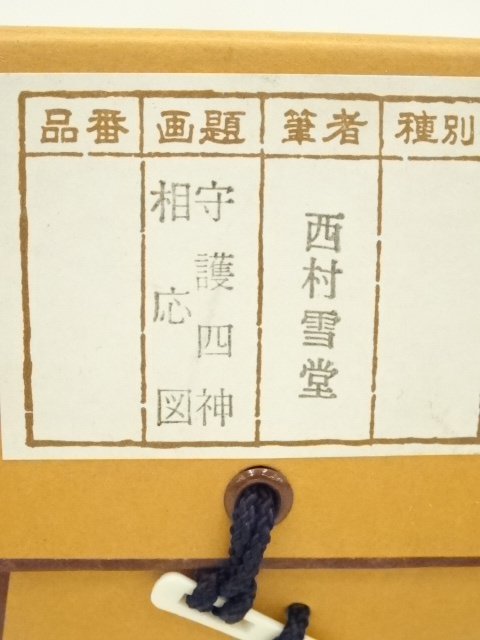 品番 画題 筆者 種別
守護四神
相応図
西村雪堂